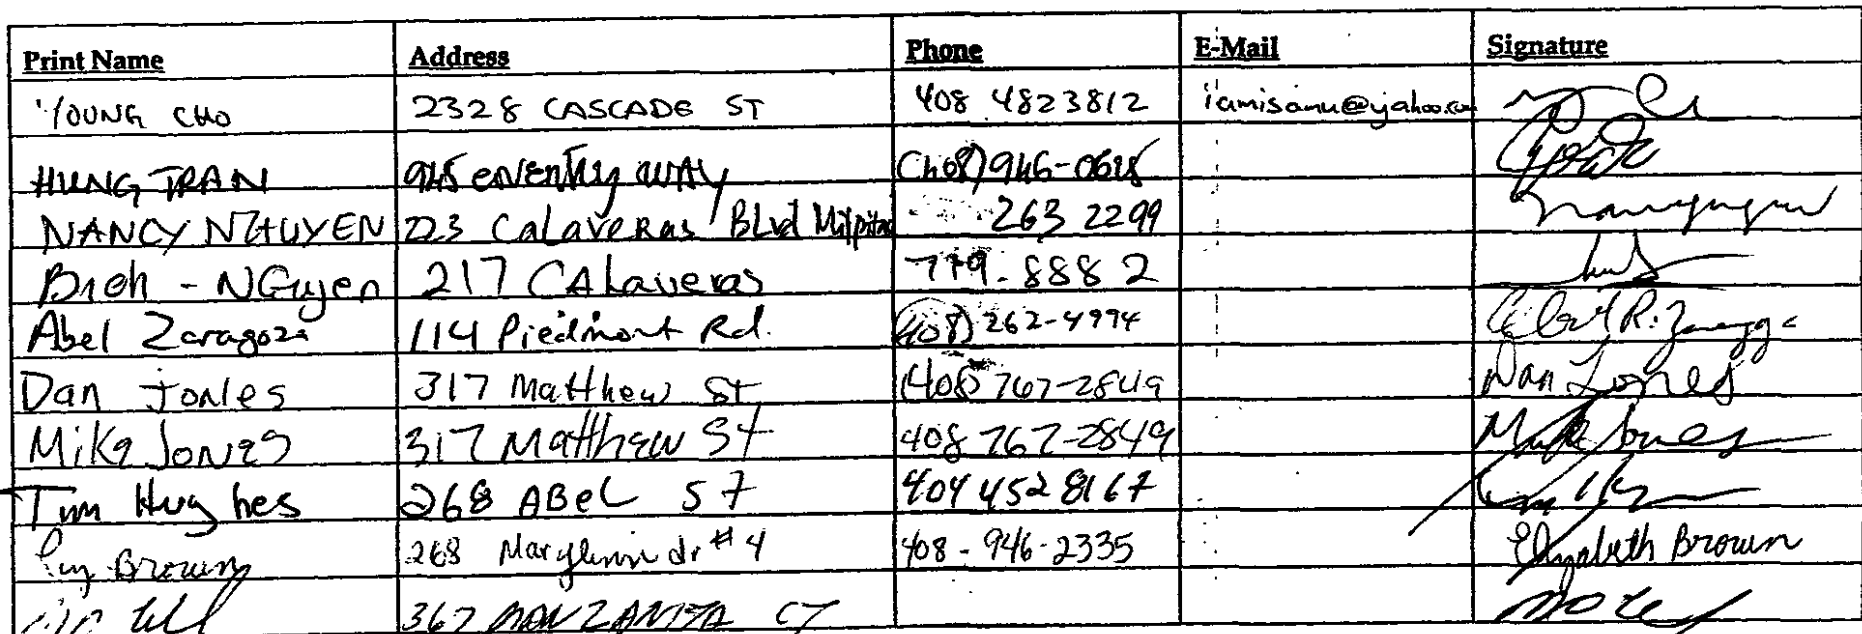 Print Name Address Phone E-Mail Signature
YOUNG CHO 2328 CASCADE ST 408 4823812 iamisamu@yahoo.com
HUNG TRAN 945 WAY (408)946-0618
NANCY NGUYEN 223 CALAVERAS BLvd Milpitas 263 2299
NGuyen 217 CALaveras 779-8882
Abel Zaragoza 114 Piedmont Rd. (408) 262-4994
Dan Jones 317 Matthew St (408) 767-2849 Dan Jones
Mike JONES 317 Matthew St 408 767-2849 Mike Jones
Tim Hughes 268 ABeL ST 404 452 8167
Brown 268 Marylinn dr #4 408-946-2335 Elizabeth Brown
367 MANZANITA CT